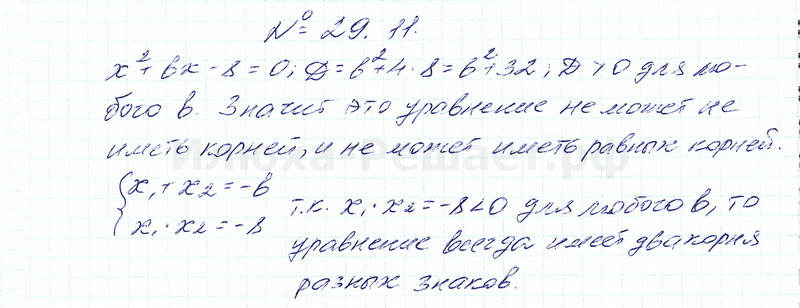 № 29.11.
x²+bx-8=0; D=b²+4·8=b²+32; D>0 для лю-
бого b. Значит это уравнение не может не
иметь корней, и не может иметь равных корней.
Илюха-Решает.рф
{x₁+x₂=-b
x₁·x₂=-8
т.к. x₁·x₂=-8<0 для любого b, то
уравнение всегда имеет два корня
разных знаков.